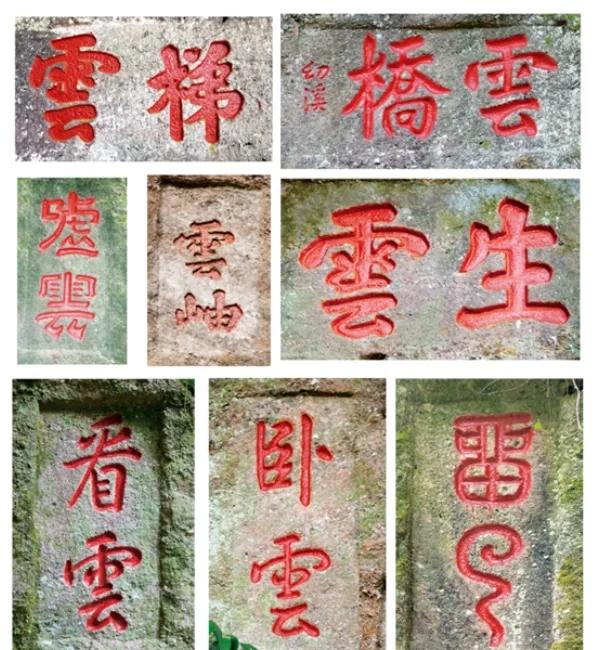 梯雲
雲橋
幼溪
嘘雲
雲岫
生雲
看雲
卧雲
云